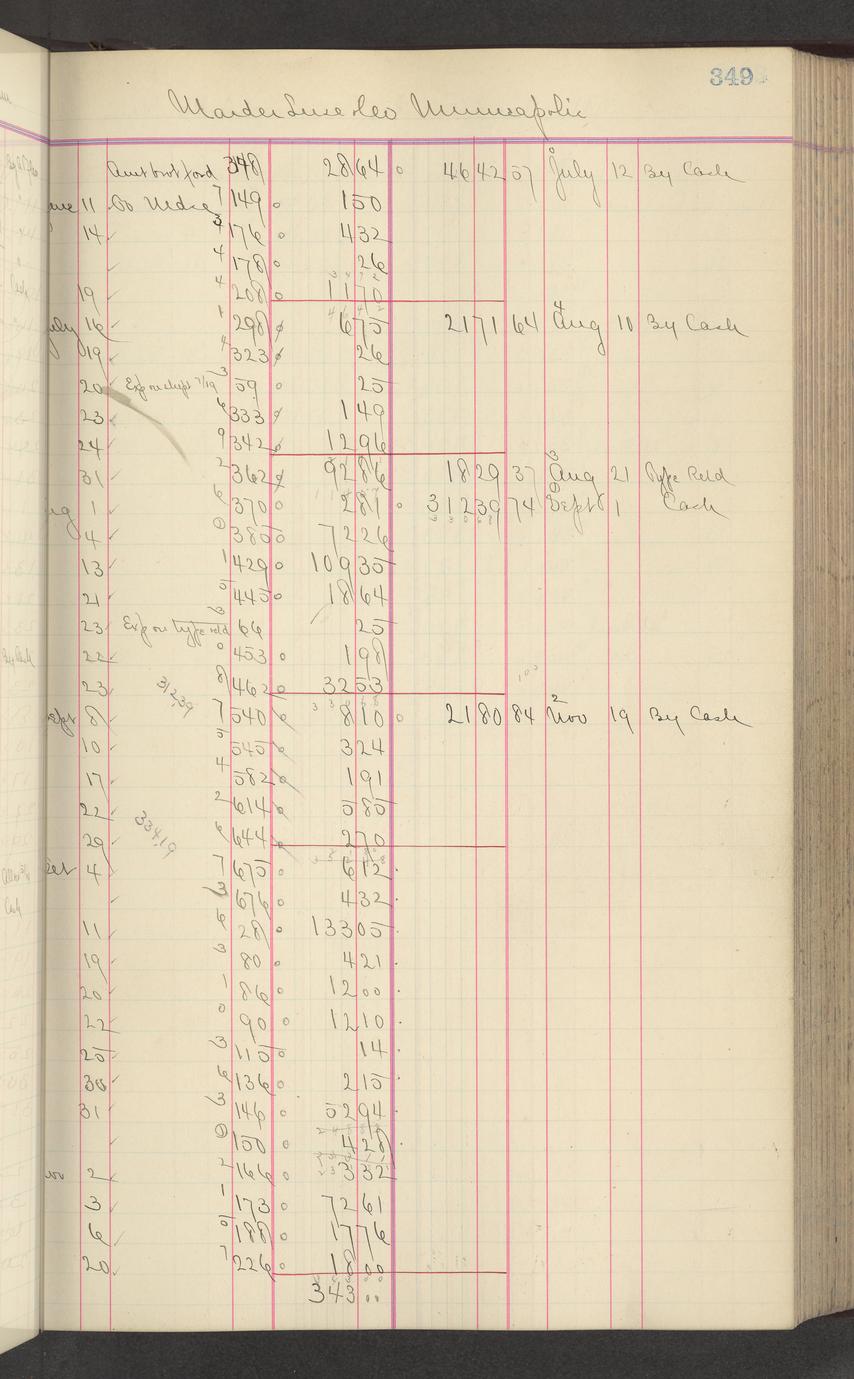 349
Marder Luse & Co Minneapolis
Amt brot ford 348 28 64 46 42 57 July 12 By Cash
11 To Mdse 7 149 1 50
14 3 176 4 32
4 178 26
19 4 208 11 70
July 16 1 298 6 75 21 71 64 Aug 10 By Cash
19 4 323 26
20 Exp on dupt 7/19 3 59 25
23 6 333 1 49
24 9 342 12 96
31 2 362 92 86 18 29 37 Aug 21 Type Retd
1 370 2 81 312 39 74 Sept 1 Cash
4 380 72 26
13 1 429 109 35
21 5 445 18 64
23 Exp on type retd 3 66 25
22 0 453 1 98
23 8 462 32 53
312.39
Sept 8 7 540 8 10 21 80 84 Nov 19 By Cash
10 5 545 3 24
17 4 582 1 91
22 2 614 5 85
334.19
29 6 644 2 70
Oct 4 7 675 6 12
3 676 4 32
11 6 28 133 05
19 3 80 4 21
20 1 86 12 00
22 0 90 12 10
25 3 115 14
30 6 136 2 15
31 3 146 52 94
150 4 28
2 2 166 3 32
3 1 173 72 61
6 5 188 17 76
20 7 226 18 00
343 00